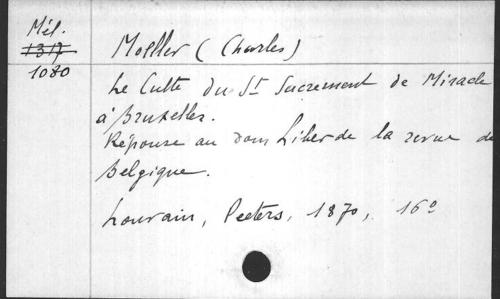 Mél.
1317
1080
Moeller (Charles)
Le Culte du St Sacrement de Miracle
à Bruxelles.
Réponse au dom Liber de la revue de
Belgique.
Louvain, Peeters, 1870, 16°